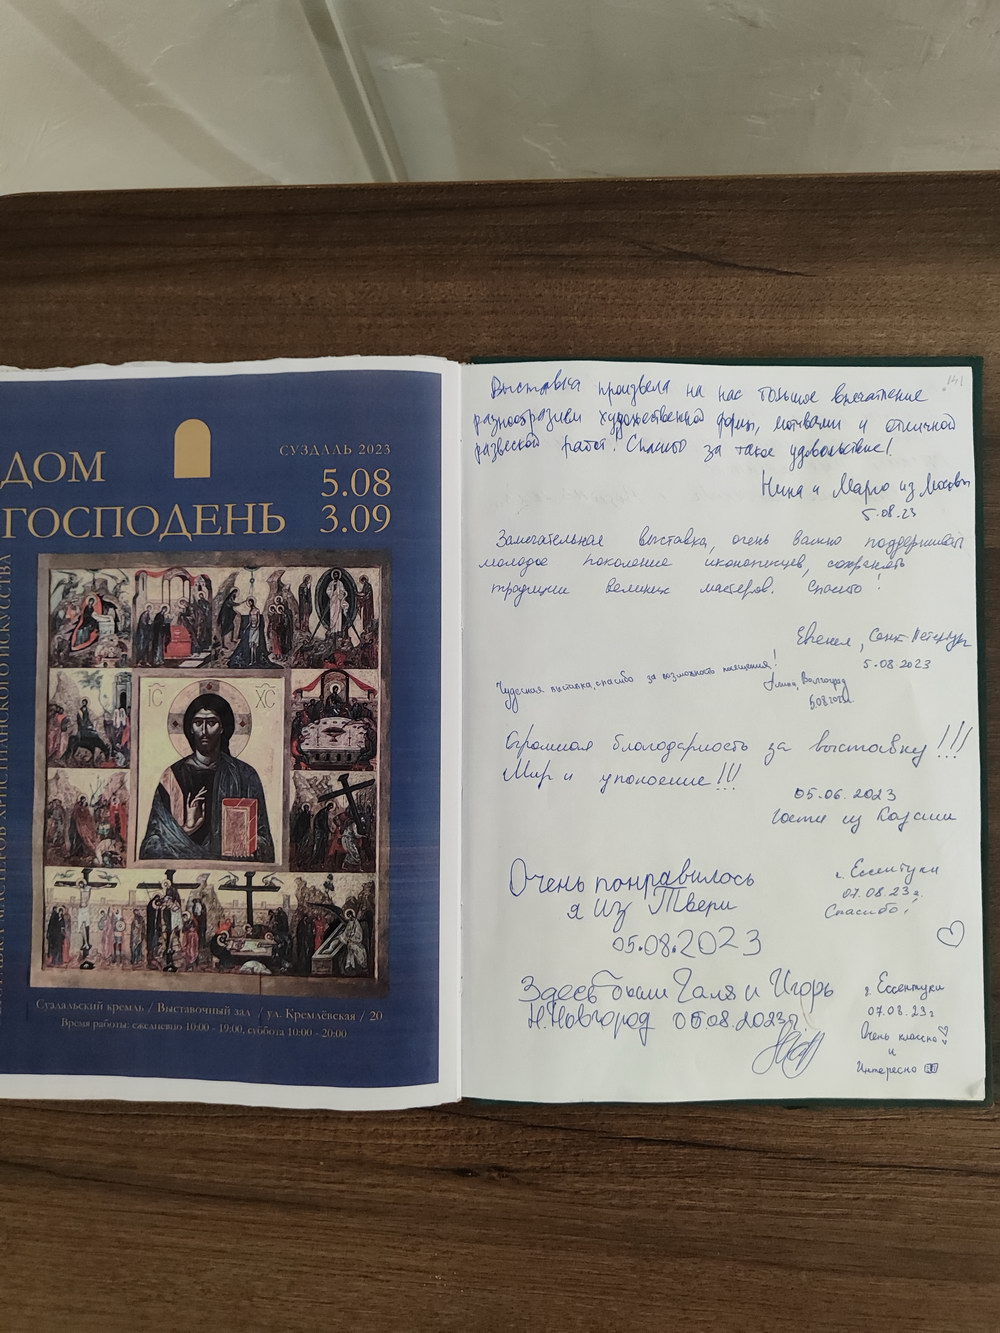 ДОМ
ГОСПОДЕНЬ
СУЗДАЛЬ 2023
5.08
3.09
МАСТЕРОВ ХРИСТИАНСКОГО ИСКУССТВА
IC XC
Суздальский кремль / Выставочный зал / ул. Кремлёвская / 20
Время работы: ежедневно 10:00 - 19:00, суббота 10:00 - 20:00
141
Выставка произвела на нас большое впечатление
разнообразием художественной формы, мотивами и отличной
развеской работ! Спасибо за такое удовольствие!
Нина и Марго из Москвы
5.08.23
Замечательная выставка, очень важно поддерживать
молодое поколение иконописцев, сохранять
традиции великих мастеров. Спасибо!
Евгения, Санкт-Петербург
5.08.2023
Чудесная выставка, спасибо за возможность посещения!
Волгоград
Огромная благодарность за выставку!!!
Мир и упокоение!!!
05.06.2023
Гости из
Очень понравилось
я из Твери
05.08.2023
г. Ессентуки
07.08.23г.
Спасибо!
Здесь были Галя и Игорь
Н.Новгород 05.08.2023г.
г. Ессентуки
07.08.23г
Очень классно
и
Интересно